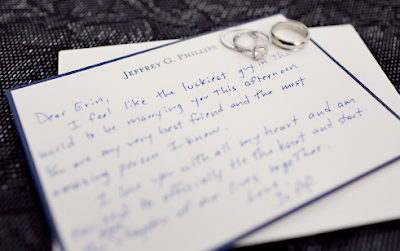 JEFFREY G. PHILLIPS
Dear Erin,
I feel like the luckiest guy in the
world to be marrying you this afternoon.
You are my very best friend and the most
amazing person I know.
I love you with all my heart and am
excited to officially tie the knot and start
the chapter of our lives together.
Love,
Jeff